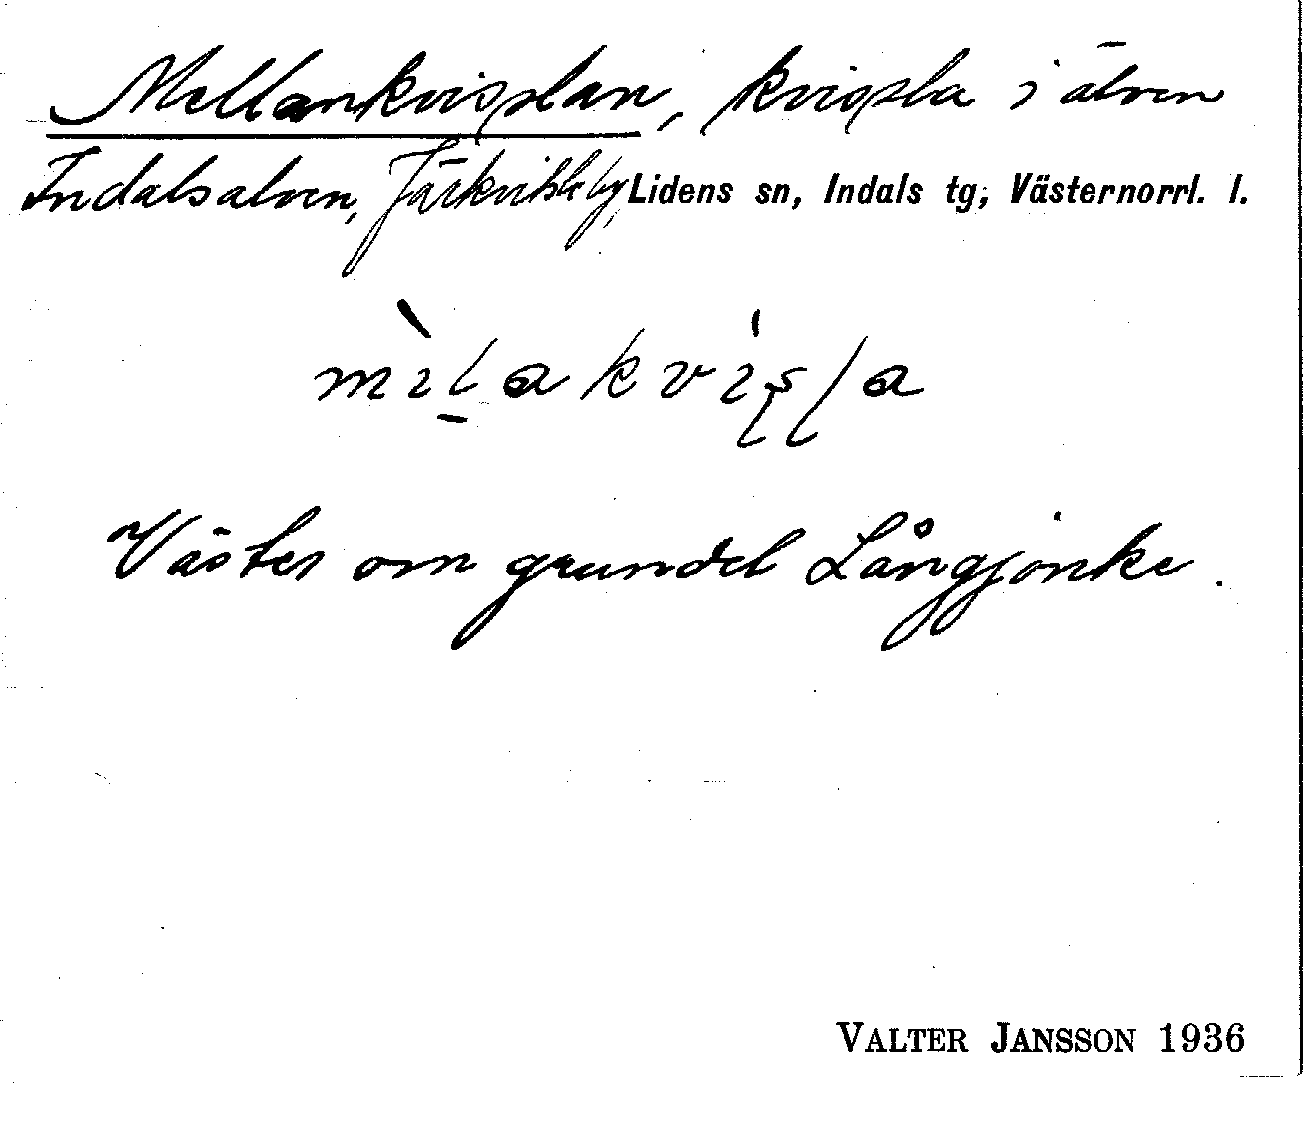 Mellankvisslan, kvissla i älven
Indalsälven, Järkvitsle by, Lidens sn, Indals tg, Västernorrl. l.
Väster om grundet Långjönke.
VALTER JANSSON 1936